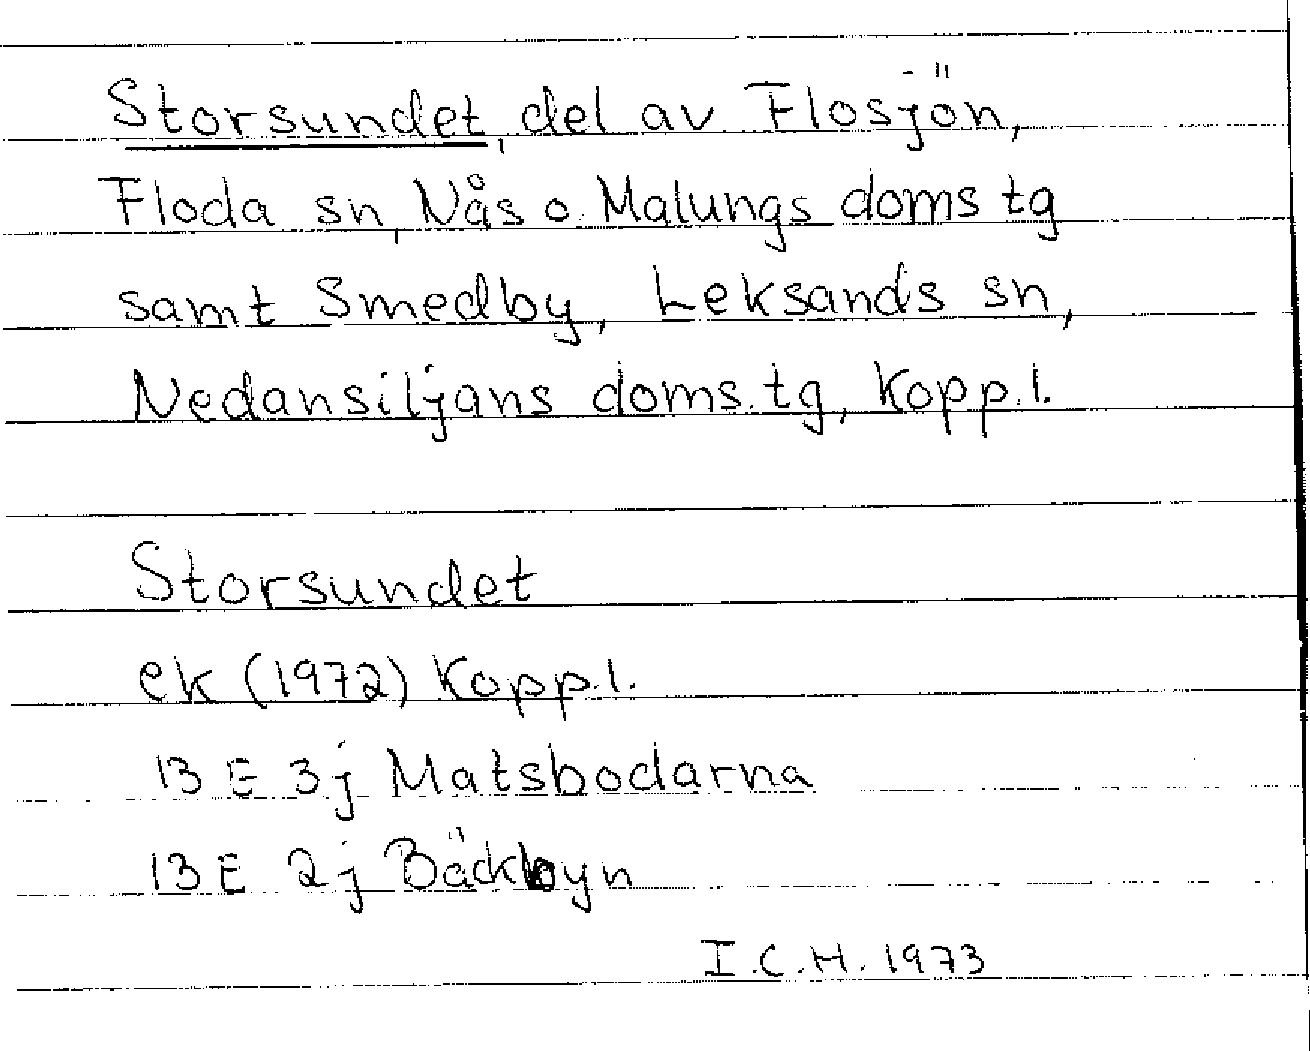 Storsundet, del av Flosjön,
Floda sn, Nås o. Malungs doms tg
samt Smedby, Leksands sn,
Nedansiljans doms. tg, Kopp. l.
Storsundet
ek (1972) Kopp. l.
13 E 3j Matsbodarna
13 E 2j Bäckbyn
I.C.H. 1973